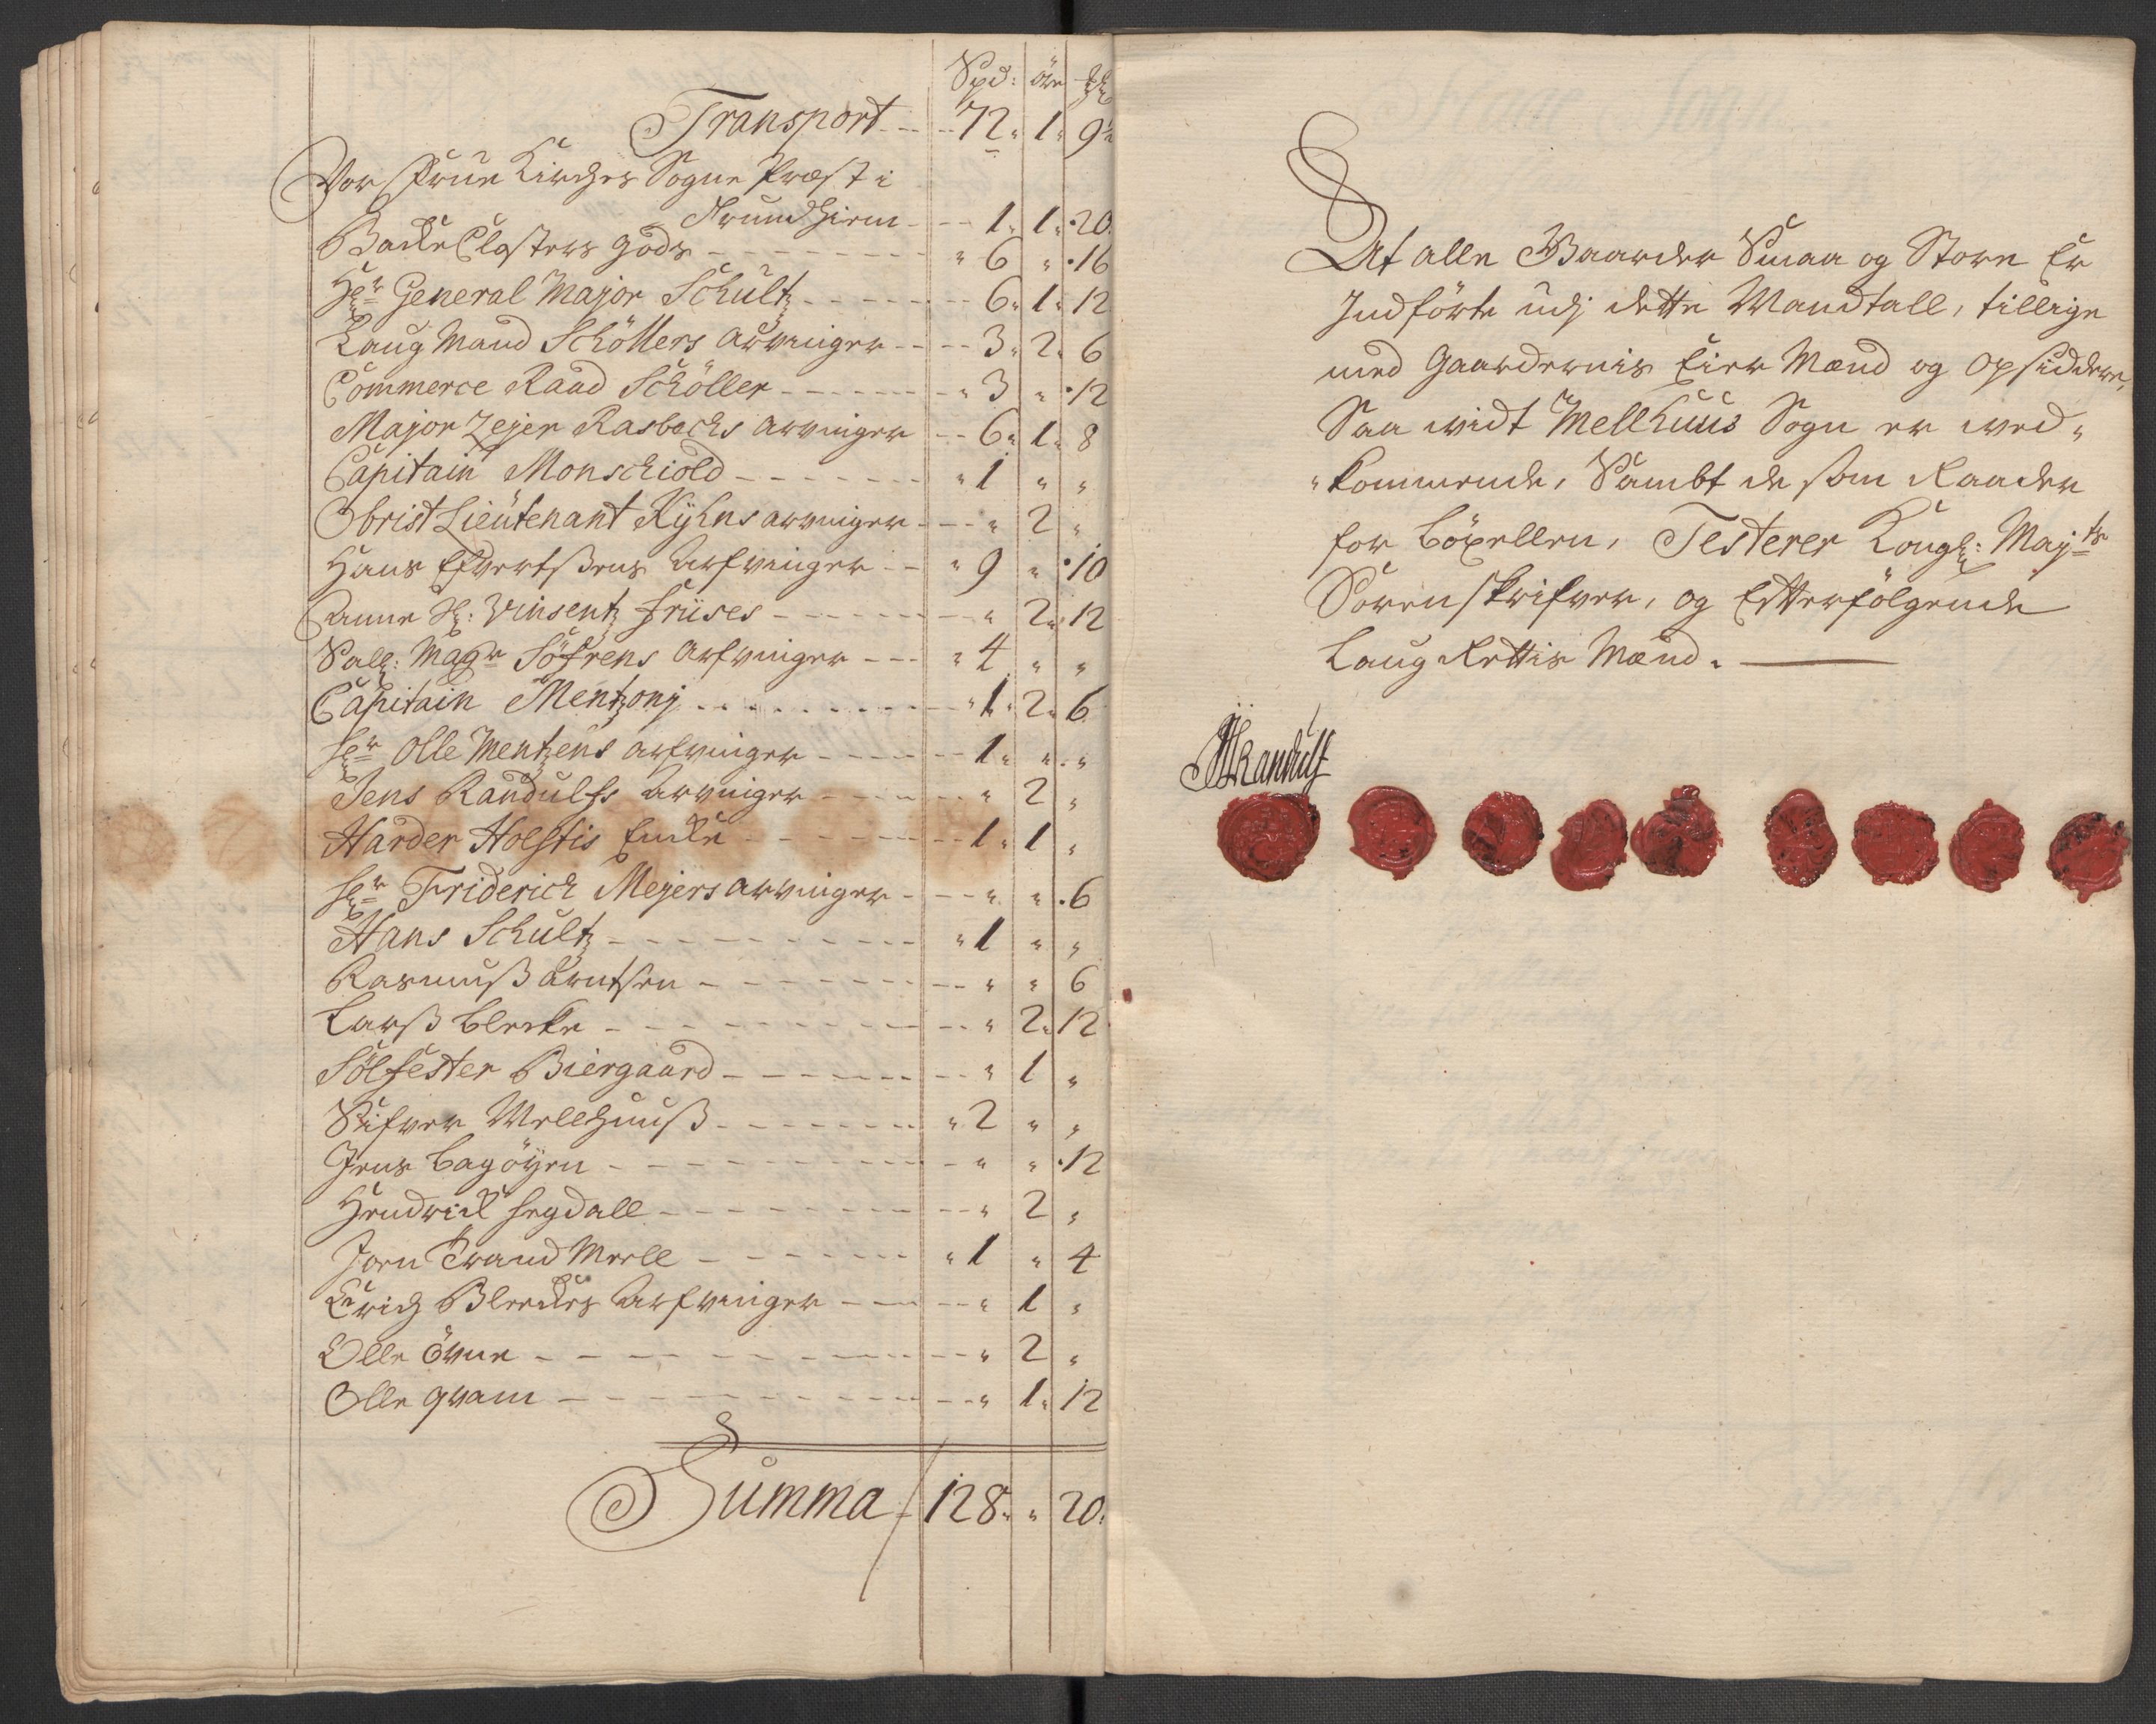 Spd: öre
Transport 72 1 9½
Vor Frue Kirches Sogne Præst i
Trundhiem 1 1 20
Backe Closters gods " 6 " 16
Hr General Major Schultz 6 1 12
Laug Mand Schöllers arvinger 3 2 6
Commerce Raad Schöller " 3 " 12
Major Zejer Rasbechs arvinger 6 1 8
Capitain Monschiold " 1 " "
Obrist Lieutenant Kyhns arvinger " 2 "
Hans Efvertßens Arfvinger " 9 " 10
Anne Sl: Vinsentz friises " 2 12
Sall: Magr Söfrens Arfvinger " 4 " "
Capitain Mentzonj " 1 2 6
Hr Olle Mentzens arfvinger 1 " "
Jens Randulfs Arvinger " 2 "
Harder Holstis Encke 1 1 "
Hr Friderich Mejers arvinger " " 6
Hans Schultz " 1 " "
Rasmuß Arntsen " " 6
Larß Blecke " 2 12
Sölfester Biergaard " 1 "
Sifver Mellhuuß " 2 " "
Jens Bagöyen " " 12
Hendrick Hegdall " 2 "
Joen Trand Meell " 1 " 4
Erich Bleckes Arfvinger " 1 "
Olle Övne " 2 "
Olle Qvam " 1 12
Summa 128 " 20
At alle Gaarder Smaa og Store Er
Indförte udj dette Mandtall, tillige
med Gaardernis Eier Mænd og Opsiddere,
Saa widt Mellhuus Sogn er wed"
"kommende, Sambt de som Raader
for Böxellen, Testerer Kongl: Majts
Sorenskrifver, og Efterfölgende
Laug Rettis Mænd.
Randulf